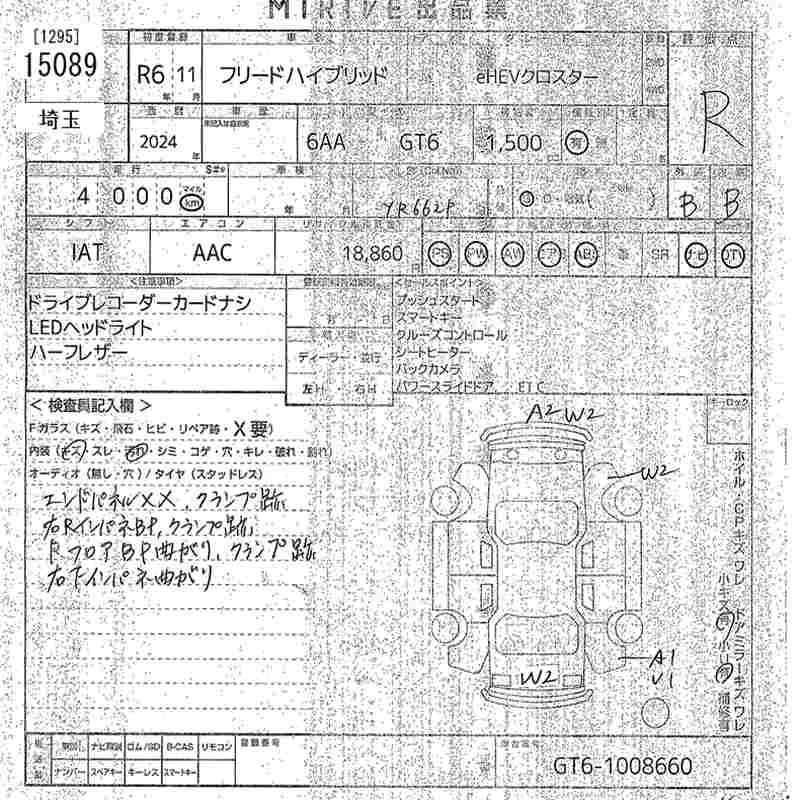 MIRIVE出品票
[1295]
15089
埼玉
初度登録
R6 11
年 月
フリードハイブリッド
eHEVクロスター
評価点
R
2024
年
6AA
GT6
1,500
有
走行
4 000
マイル
km
車検
年 月
YR662P
B B
シフト
エアコン
IAT
AAC
18,860
円
PS PW AW エア ABS 革 SR ナビ TV
<注意事項>
ドライブレコーダーカードナシ
LEDヘッドライト
ハーフレザー
ディーラー・並行
左H・右H
<セールスポイント>
プッシュスタート
スマートキー
クルーズコントロール
シートヒーター
バックカメラ
パワースライドドア ETC
<検査員記入欄>
Fガラス(キズ・飛石・ヒビ・リペア跡・X要)
内装(キズ・スレ・汚れ・シミ・コゲ・穴・キレ・破れ・割れ)
オーディオ(無し・穴)/タイヤ(スタッドレス)
エンドパネルXX、クランプ跡
右RインパネBP、クランプ跡
RフロアBP曲がり、クランプ跡
右Fインパネ曲がり
キーロック
A2 W2
W2
A1
U1
W2
ホイル・CPキズワレ
ドアミラーキズワレ
ナビ ゴム/SD B-CAS リモコン
ナンバー スペアキー キーレス スマートキー
登録番号
車台番号
GT6-1008660